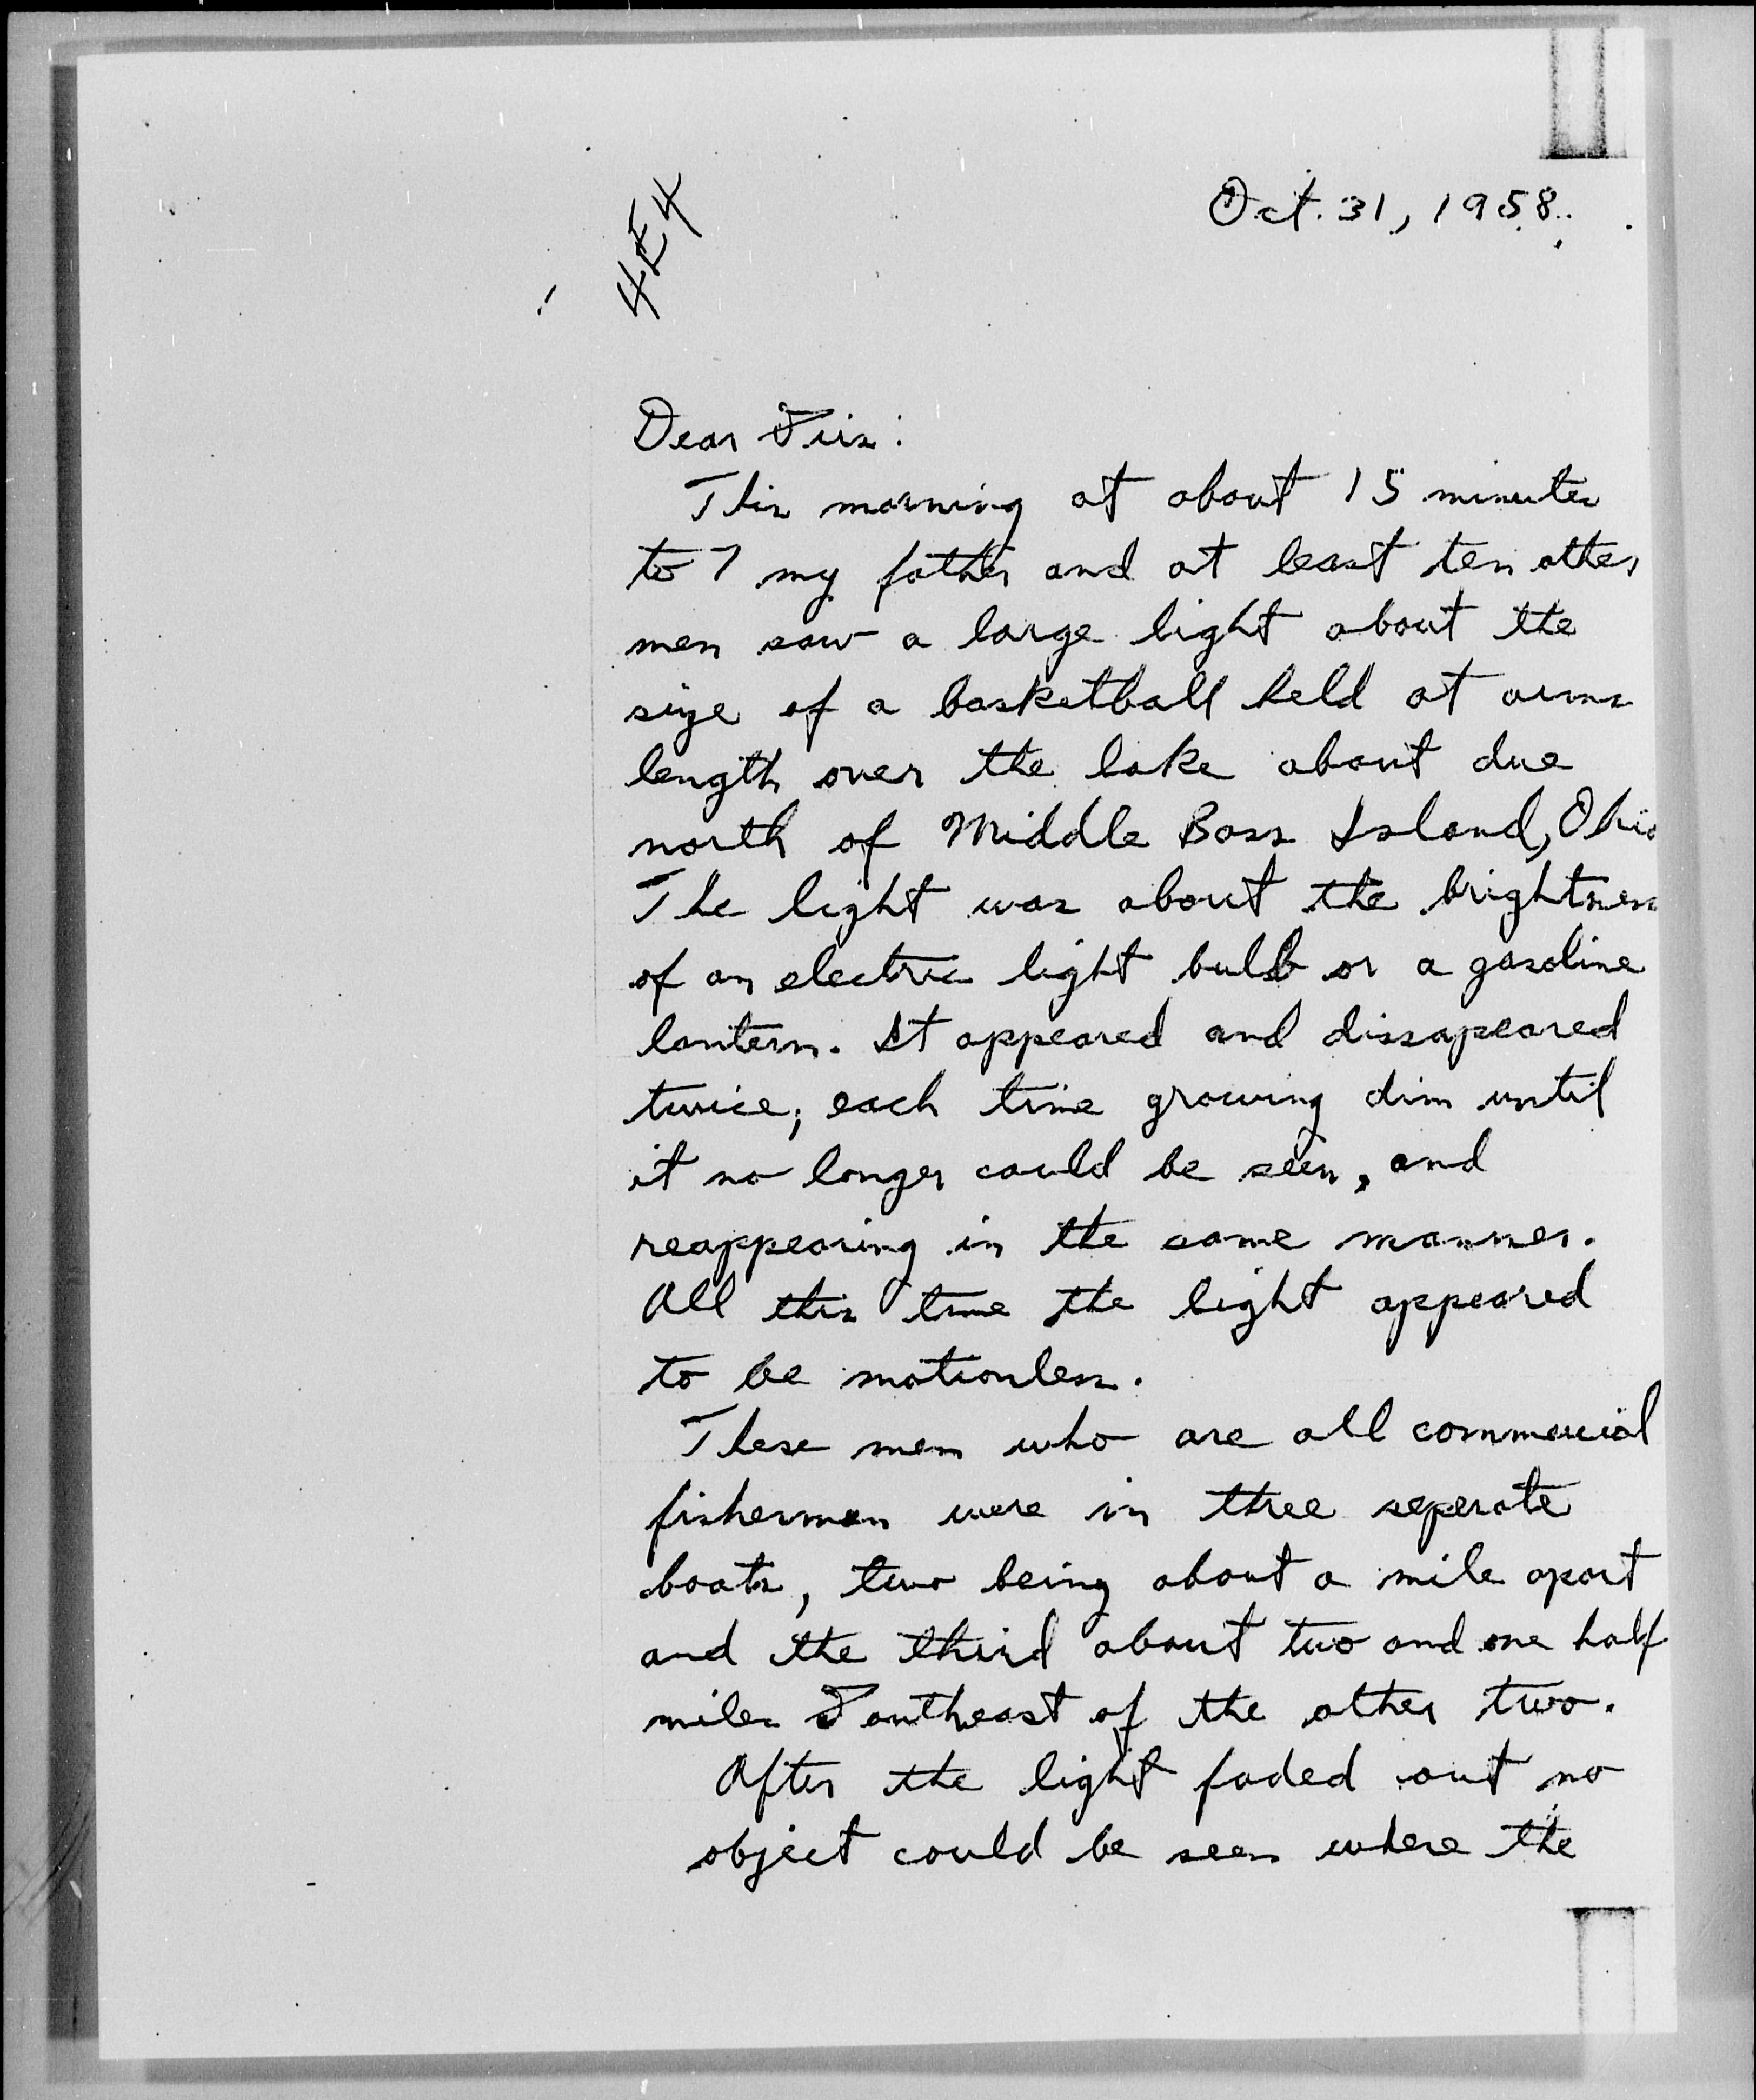 4E4
Oct. 31, 1958.
Dear Sirs:
This morning at about 15 minutes
to 7 my father and at least ten other
men saw a large light about the
size of a basketball held at arms
length over the lake about due
north of Middle Bass Island, Ohio
The light was about the brightness
of an electric light bulb or a gasoline
lantern. It appeared and dissapeared
twice; each time growing dim until
it no longer could be seen, and
reappearing in the same manner.
All this time the light appeared
to be motionless.
These men who are all commercial
fishermen were in three seperate
boats, two being about a mile apart
and the third about two and one half
miles Southeast of the other two.
After the light faded out no
object could be seen where the